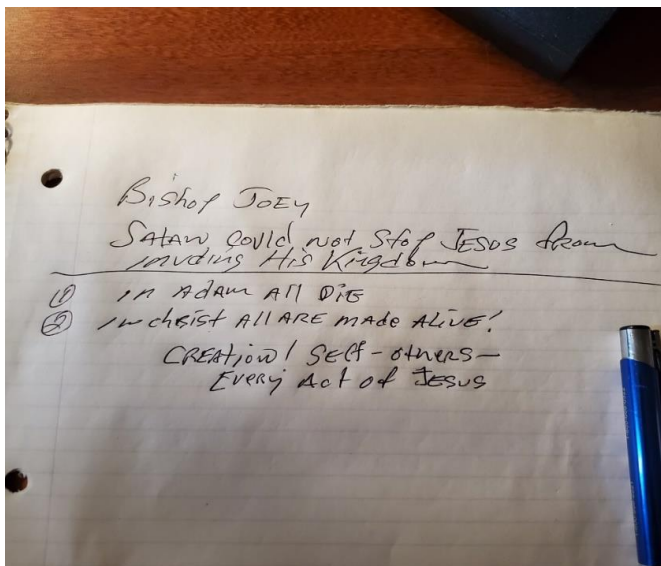 Bishop JOEY
SATAN could not Stop JESUS from
invding His Kingdom
① in ADAM All DIE
② in christ All ARE made Alive!
CREAtion/ Self-others-
Every Act of JESUS